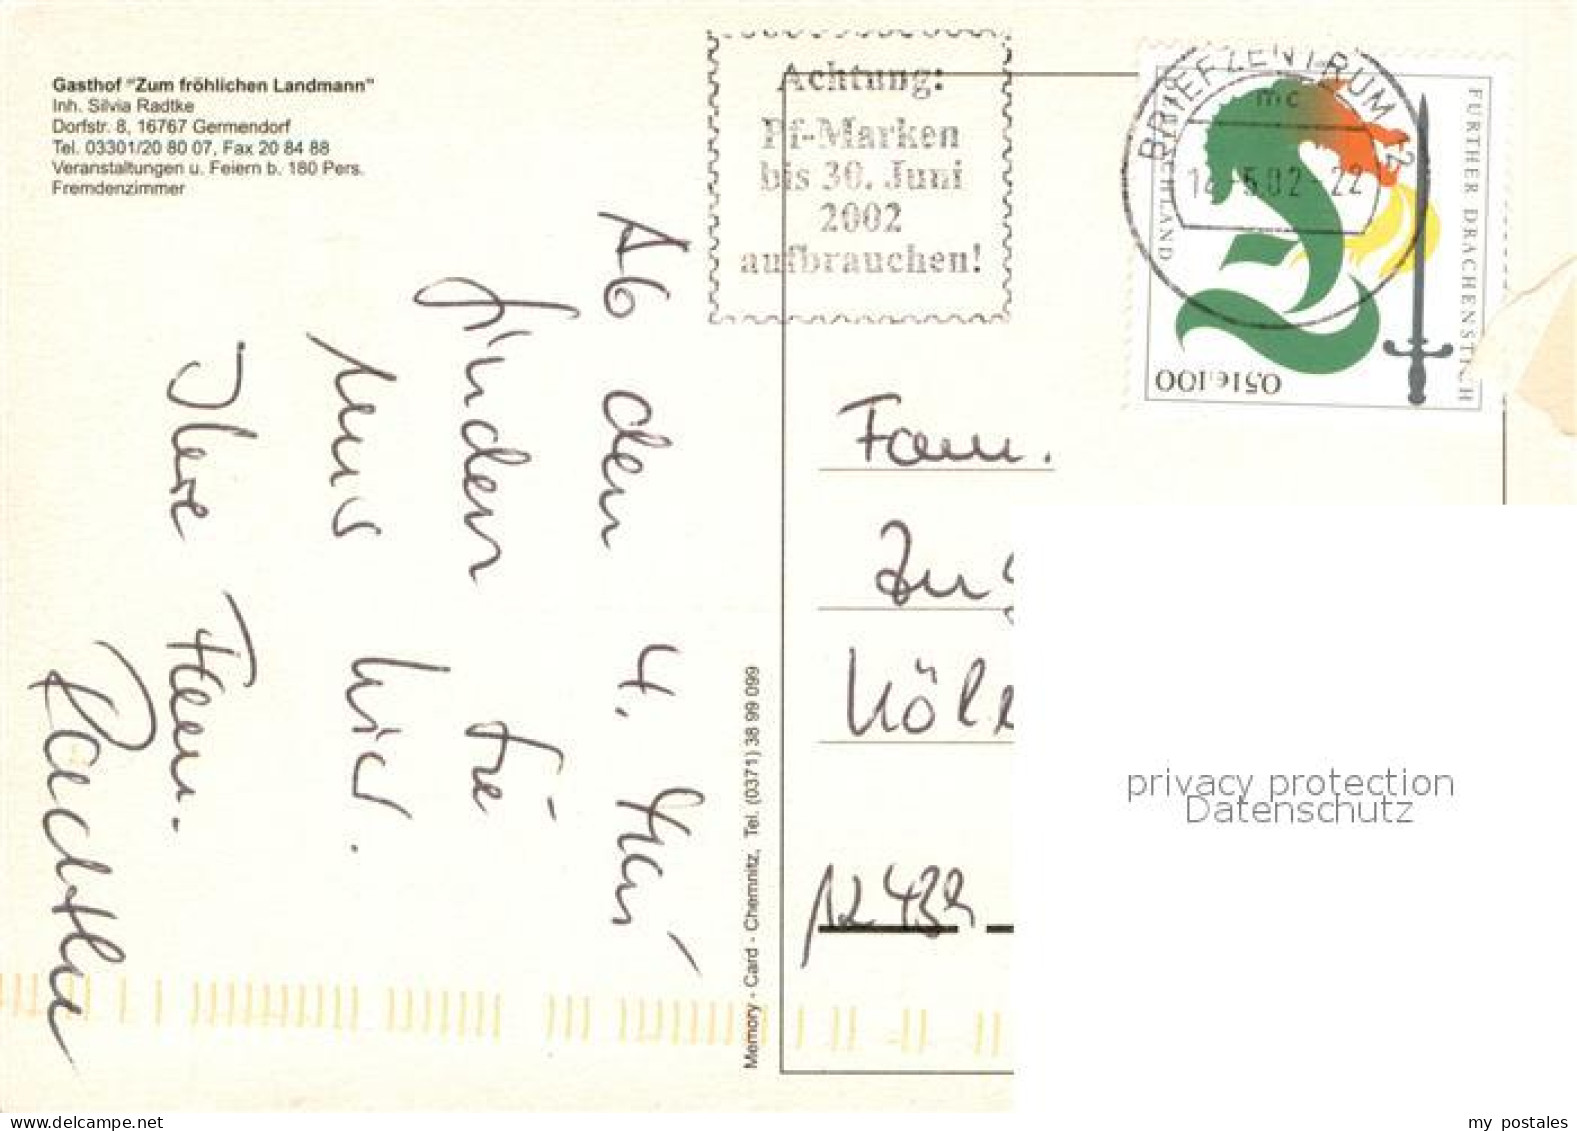 Gasthof "Zum fröhlichen Landmann"
Inh. Silvia Radtke
Dorfstr. 8, 16767 Germendorf
Tel. 03301/20 80 07, Fax 20 84 88
Veranstaltungen u. Feiern b. 180 Pers.
Fremdenzimmer
Achtung:
Pf-Marken
bis 30. Juni
2002
aufbrauchen!
BRIEFZENTRUM 12
mc
5.02-22
DEUTSCHLAND
FURTHER DRACHENSTICH
0,51€ 100
Ab dem 4. Mai
finden Sie
uns hier.
Ihre Fam.
Memory - Card - Chemnitz, Tel. (0371) 38 99 099
Fam.
privacy protection
Datenschutz
www.delcampe.net
my_postales